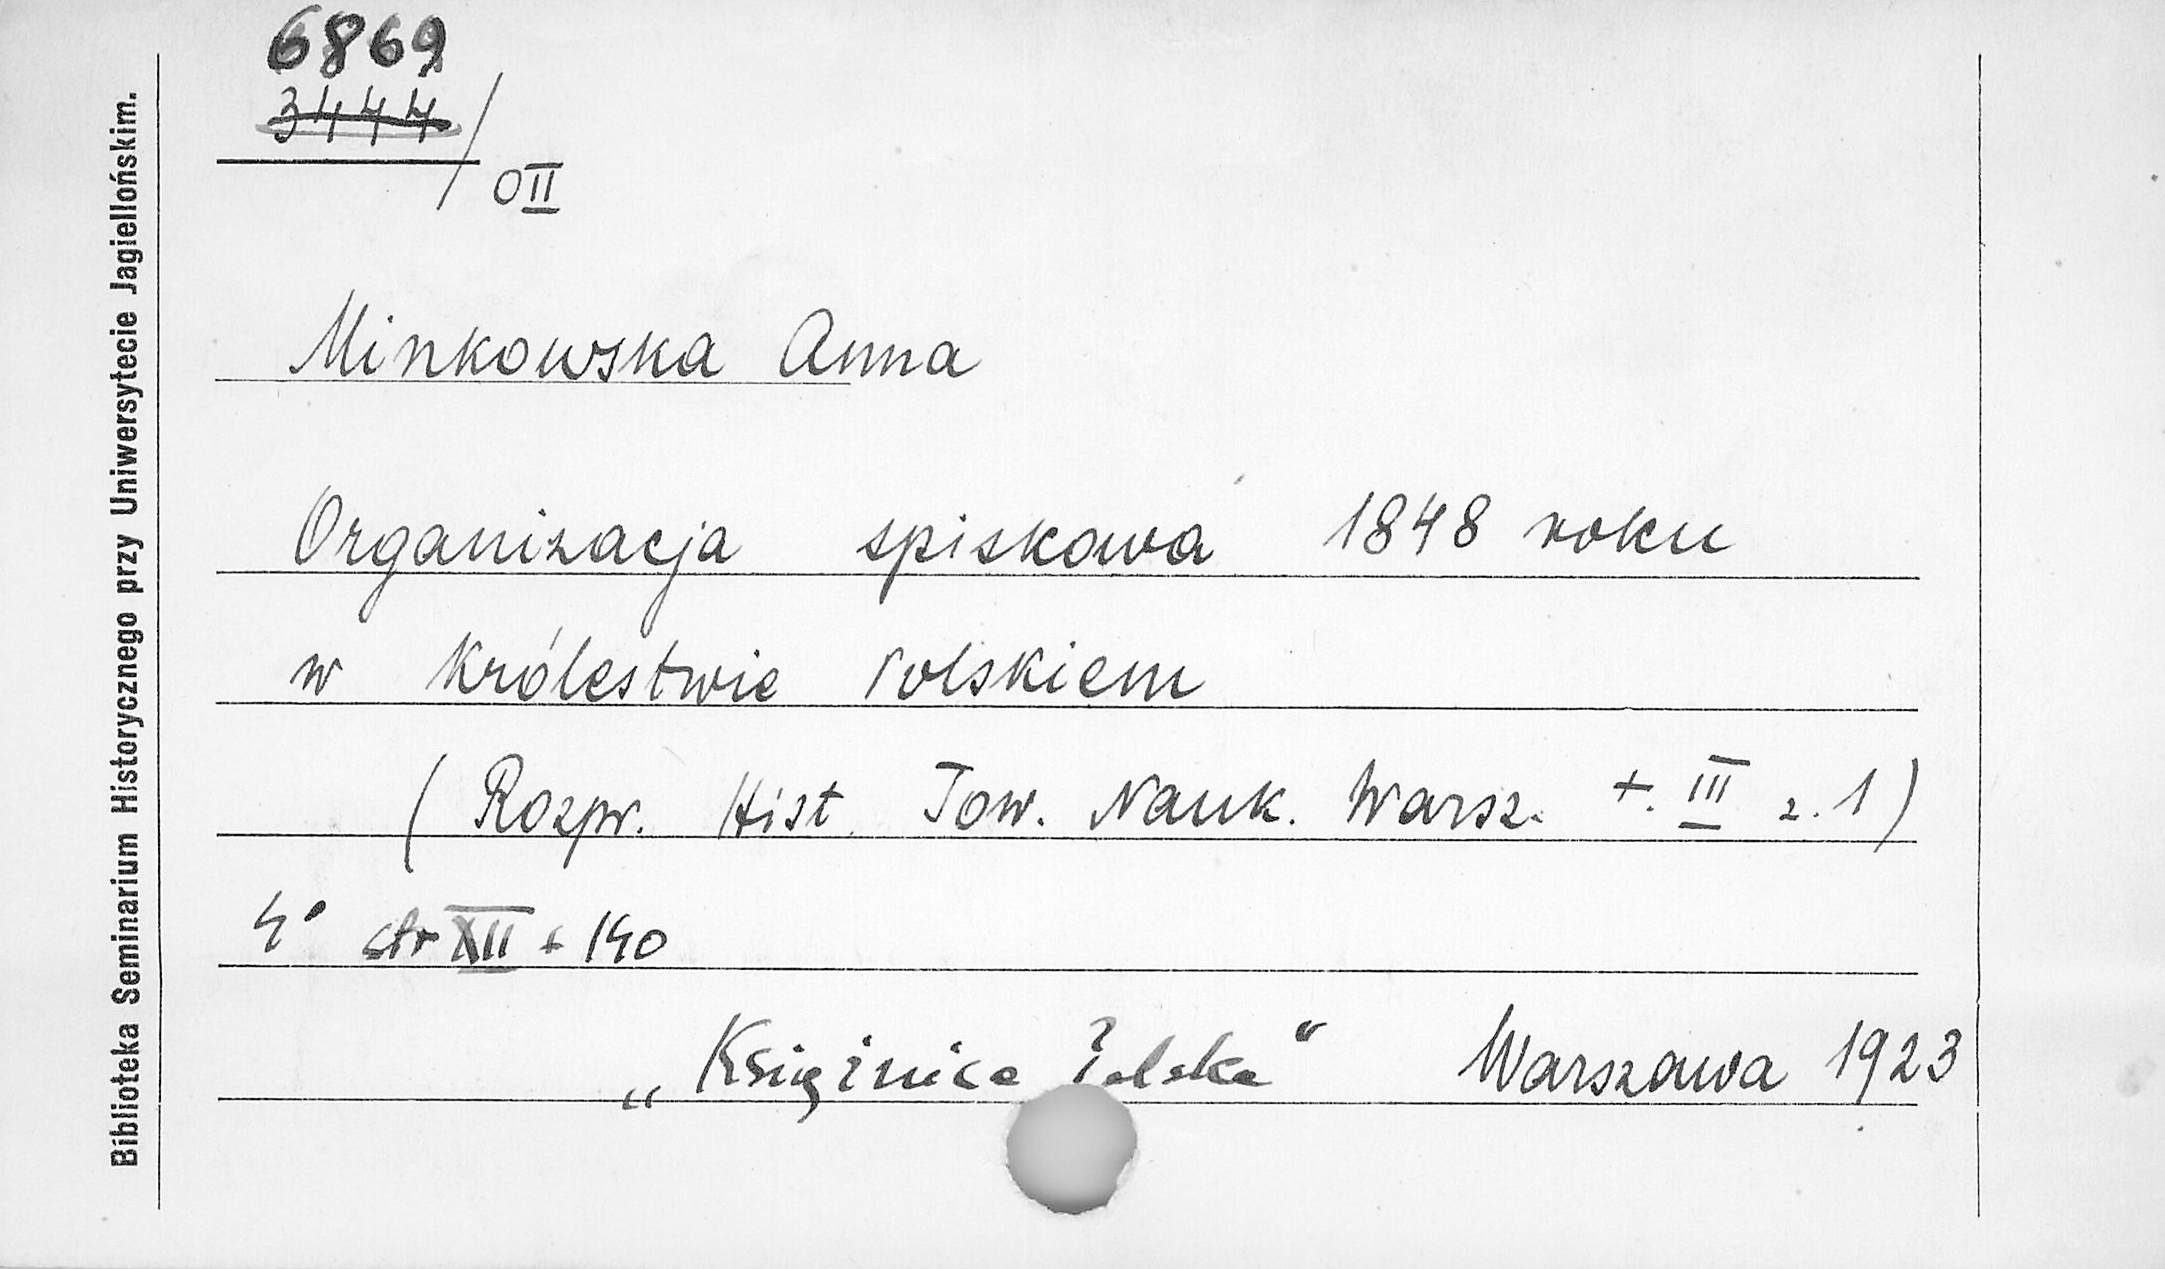 6869
3444
/ OII
Minkowska Anna
Organizacja spiskowa 1848 roku
w Królestwie Polskiem
( Rozpr. Hist. Tow. Nauk. Warsz. t. III z. 1 )
4° str XII + 140
„Książnica Polska“ Warszawa 1923
Biblioteka Seminarium Historycznego przy Uniwersytecie Jagiellońskim.